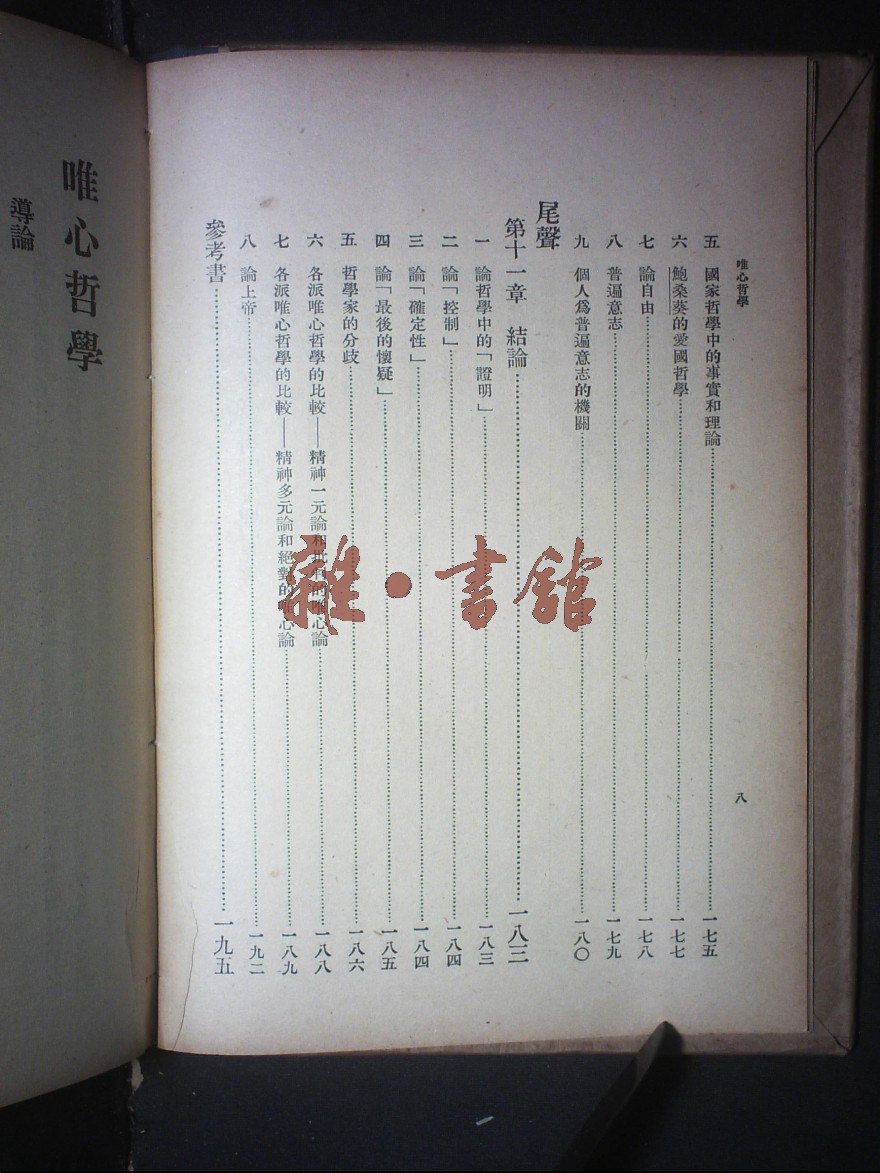 唯心哲學
八
五　國家哲學中的事實和理論…………一七五
六　鮑桑葵的愛國哲學…………一七七
七　論自由…………一七八
八　普遍意志…………一七九
九　個人爲普遍意志的機關…………一八〇
尾聲
第十一章　結論…………一八三
一　論哲學中的「證明」…………一八三
二　論「控制」…………一八四
三　論「確定性」…………一八四
四　論「最後的懷疑」…………一八五
五　哲學家的分歧…………一八六
六　各派唯心哲學的比較——精神一元論和批判的唯心論…………一八八
七　各派唯心哲學的比較——精神多元論和絕對的唯心論…………一八九
八　論上帝…………一九二
參考書…………一九五
唯心哲學
導論
雜·書館